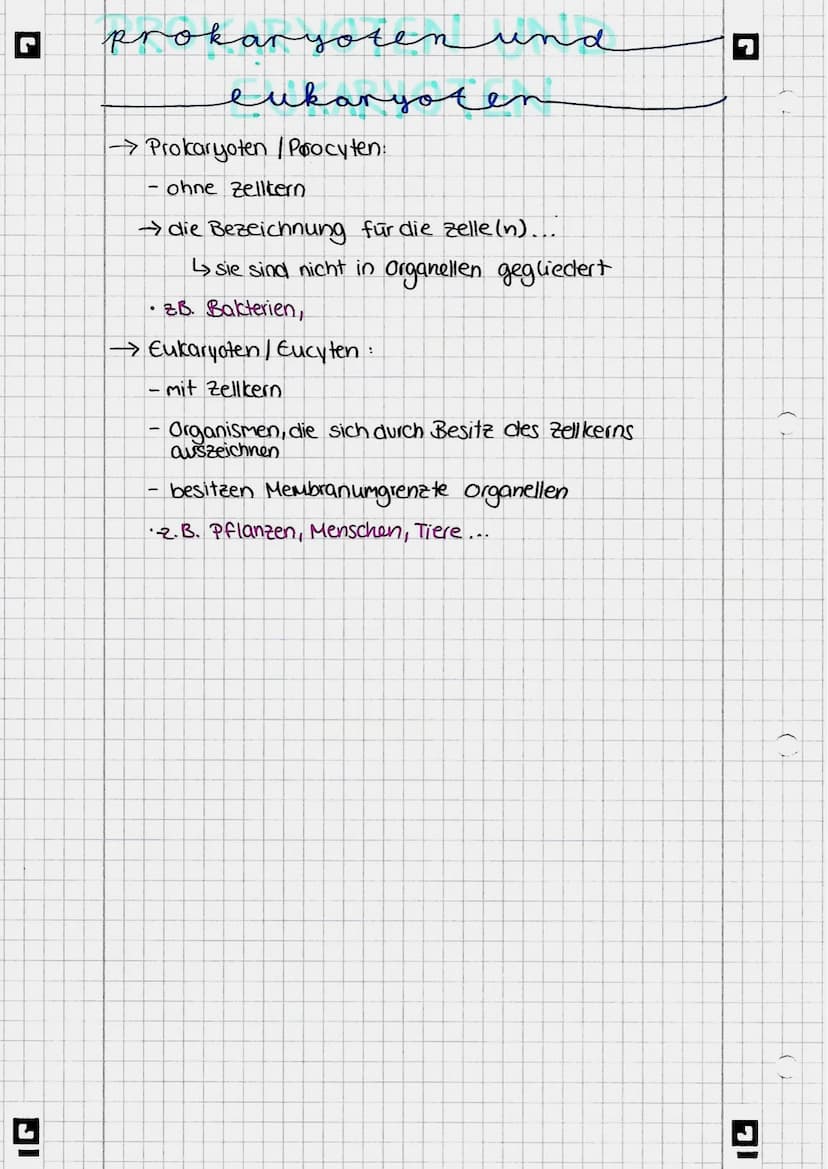 PROKARYOTEN UND
prokaryoten und
EUKARYOTEN
eukaryoten
→ Prokaryoten / Procyten:
- ohne Zellkern
→ die Bezeichnung für die Zelle(n)...
↳ sie sind nicht in Organellen gegliedert
· zB. Bakterien,
→ Eukaryoten / Eucyten :
- mit Zellkern
- Organismen, die sich durch Besitz des Zellkerns
auszeichnen
- besitzen Membranumgrenzte Organellen
· z.B. Pflanzen, Menschen, Tiere ...